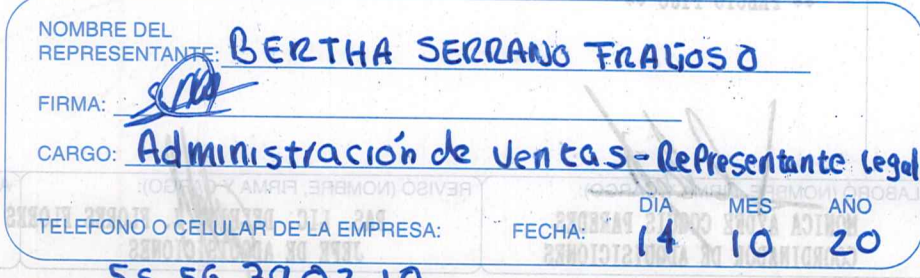 NOMBRE DEL
REPRESENTANTE: BERTHA SERRANO FRAGOSO
FIRMA:
CARGO: Administración de Ventas - Representante Legal
DIA MES AÑO
TELEFONO O CELULAR DE LA EMPRESA: FECHA: 14 10 20